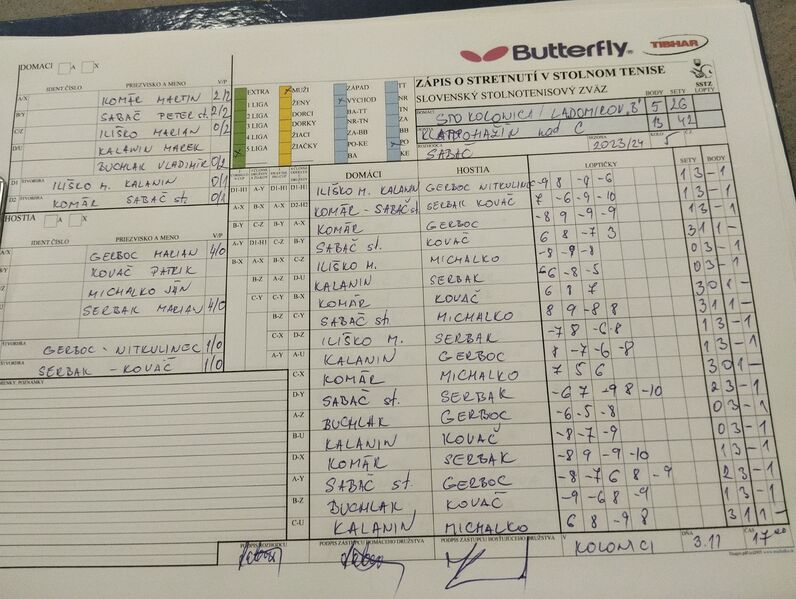 Butterfly
TIBHAR
DOMÁCI A X
ZÁPIS O STRETNUTÍ V STOLNOM TENISE
SLOVENSKÝ STOLNOTENISOVÝ ZVÄZ
SSTZ
IDENT ČÍSLO PRIEZVISKO A MENO V/P
A/X KOMÁR MARTIN 2/2
B/Y SABAČ PETER st. 2/2
C/Z ILIŠKO MARIAN 0/2
D/U KALANIN MAREK
BUCHLAK VLADIMÍR 0/2
D1 ŠTVORHRA ILIŠKO M. KALANIN 0/1
D2 ŠTVORHRA KOMÁR SABAČ st. 0/1
EXTRA
1 LIGA
2 LIGA
3 LIGA
4 LIGA
5 LIGA
MUŽI
ŽENY
DORCI
DORKY
ŽIACI
ŽIAČKY
ZÁPAD
VÝCHOD
BA-TT
NR-TN
ZA-BB
PO-KE
TT
TN
NR
ZA
BB
PO
KE
DOMÁCI STO KOLONICA / LADOMIROV "B" BODY 5 SETY 26 LOPTY
13 42
SEZONA 2023/24 KOLO 5
ROZHODCA SABAČ
HOSTIA A X
IDENT ČÍSLO PRIEZVISKO A MENO V/P
GERBOC MARIAN 4/0
KOVAČ PATRIK
MICHALKO JÁN
SERBAK MARIAN 4/0
ŠTVORHRA GERBOC - NITKULINEC 1/0
ŠTVORHRA SERBAK - KOVAČ 1/0
POZNÁMKY
DOMÁCI HOSTIA LOPTIČKY SETY BODY
ILIŠKO M. KALANIN GERBOC NITKULINEC -9 8 -9 -6 1 3 -1
KOMÁR - SABAČ st. SERBAK KOVAČ 7 -6 -9 -10 1 3 -1
KOMÁR GERBOC -8 9 -9 -9 1 3 -1
SABAČ st. KOVAČ 6 8 -7 3 3 1 1
ILIŠKO M. MICHALKO -8 -9 -8 0 3 -1
KALANIN SERBAK -6 -8 -5 0 3 -1
KOMÁR KOVAČ 6 8 7 3 0 1
SABAČ st. MICHALKO 8 9 -8 8 3 1 1
ILIŠKO M. SERBAK -7 8 -6 -8 1 3 -1
KALANIN GERBOC 8 -7 -6 -8 1 3 -1
C-X KOMÁR MICHALKO 7 5 6 3 0 1
D-Y SABAČ st. SERBAK -6 7 -9 8 -10 2 3 -1
A-Z BUCHLAK GERBOC -6 -5 -8 0 3 -1
B-U KALANIN KOVAČ -8 -7 -9 0 3 -1
D-X KOMÁR SERBAK -8 9 -9 -10 1 3 -1
A-Y SABAČ st. GERBOC -8 -7 6 8 -9 2 3 -1
B-Z BUCHLAK KOVAČ -9 -6 8 -9 1 3 -1
C-U KALANIN MICHALKO 6 8 -9 8 3 1 1
PODPIS ROZHODCU PODPIS ZÁSTUPCU DOMÁCEHO DRUŽSTVA PODPIS ZÁSTUPCU HOSŤUJÚCEHO DRUŽSTVA V KOLONICI DŇA 3.11 ČAS 17 00